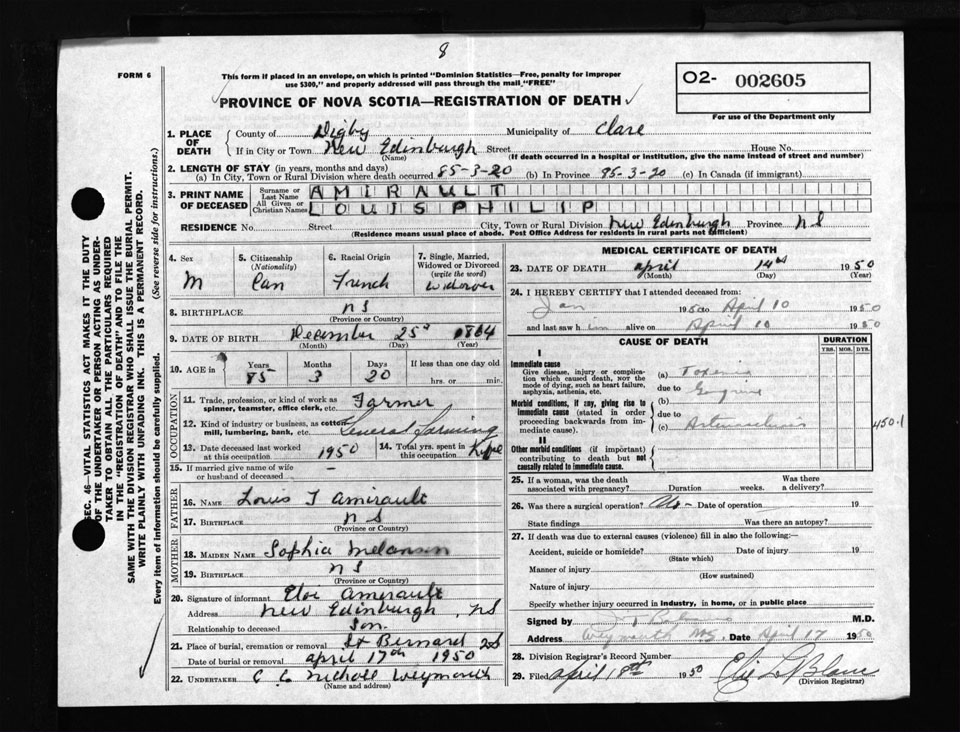 8
FORM 6
This form if placed in an envelope, on which is printed "Dominion Statistics—Free, penalty for improper
use $300," and properly addressed will pass through the mail "FREE"
O2- 002605
For use of the Department only
PROVINCE OF NOVA SCOTIA—REGISTRATION OF DEATH
SEC. 46—VITAL STATISTICS ACT MAKES IT THE DUTY
OF THE UNDERTAKER OR PERSON ACTING AS UNDER-
TAKER TO OBTAIN ALL THE PARTICULARS REQUIRED
IN THE "REGISTRATION OF DEATH" AND TO FILE THE
SAME WITH THE DIVISION REGISTRAR WHO SHALL ISSUE THE BURIAL PERMIT.
WRITE PLAINLY WITH UNFADING INK. THIS IS A PERMANENT RECORD.
Every item of information should be carefully supplied. (See reverse side for instructions.)
1. PLACE OF DEATH County of Digby Municipality of Clare
If in City or Town New Edinburgh Street House No.
(Name) (If death occurred in a hospital or institution, give the name instead of street and number)
2. LENGTH OF STAY (in years, months and days)
(a) In City, Town or Rural Division where death occurred 85-3-20 (b) In Province 85-3-20 (c) In Canada (if immigrant)
3. PRINT NAME OF DECEASED Surname or Last Name AMIRAULT
All Given or Christian Names LOUIS PHILIP
RESIDENCE No. Street City, Town or Rural Division New Edinburgh Province N S
(Residence means usual place of abode. Post Office Address for residents in rural parts not sufficient)
4. Sex M
5. Citizenship (Nationality) Can
6. Racial Origin French
7. Single, Married, Widowed or Divorced (write the word) Widower
8. BIRTHPLACE N S
(Province or Country)
9. DATE OF BIRTH December 25th 1864
(Month) (Day) (Year)
10. AGE in Years 85 Months 3 Days 20 If less than one day old
hrs. or min.
OCCUPATION
11. Trade, profession, or kind of work as spinner, teamster, office clerk, etc. Farmer
12. Kind of industry or business, as cotton mill, lumbering, bank, etc. General Farming
13. Date deceased last worked at this occupation 1950 14. Total yrs. spent in this occupation Life
15. If married give name of wife or husband of deceased —
FATHER
16. NAME Louis T Amirault
17. BIRTHPLACE N S
(Province or Country)
MOTHER
18. MAIDEN NAME Sophia Melanson
19. BIRTHPLACE N S
(Province or Country)
20. Signature of informant Eloi Amirault
Address New Edinburgh, NS
Relationship to deceased Son.
21. Place of burial, cremation or removal St Bernard NS
Date of burial or removal April 17th 1950
22. UNDERTAKER C C Nichols Weymouth
(Name and address)
MEDICAL CERTIFICATE OF DEATH
23. DATE OF DEATH April 14th 1950
(Month) (Day) (Year)
24. I HEREBY CERTIFY that I attended deceased from:
Jan 1950 to April 10 1950
and last saw him alive on April 10 1950
CAUSE OF DEATH DURATION
YRS. MOS. DYS.
I
Immediate cause
Give disease, injury or complication which caused death, not the mode of dying, such as heart failure, asphyxia, asthenia, etc.
(a) Toxemia
due to
Morbid conditions, if any, giving rise to immediate cause (stated in order proceeding backwards from immediate cause).
(b) Gangrene
due to
(c) Arteriosclerosis 450.1
II
Other morbid conditions (if important) contributing to death but not causally related to immediate cause.
25. If a woman, was the death associated with pregnancy? Duration weeks. Was there a delivery?
26. Was there a surgical operation? No - Date of operation 19
State findings Was there an autopsy?
27. If death was due to external causes (violence) fill in also the following:—
Accident, suicide or homicide? Date of injury 19
(State which)
Manner of injury
(How sustained)
Nature of injury
Specify whether injury occurred in industry, in home, or in public place
Signed by M.D.
Address Weymouth N.S. Date April 17 1950
28. Division Registrar's Record Number
29. Filed April 18th 1950 LeBlanc
(Division Registrar)